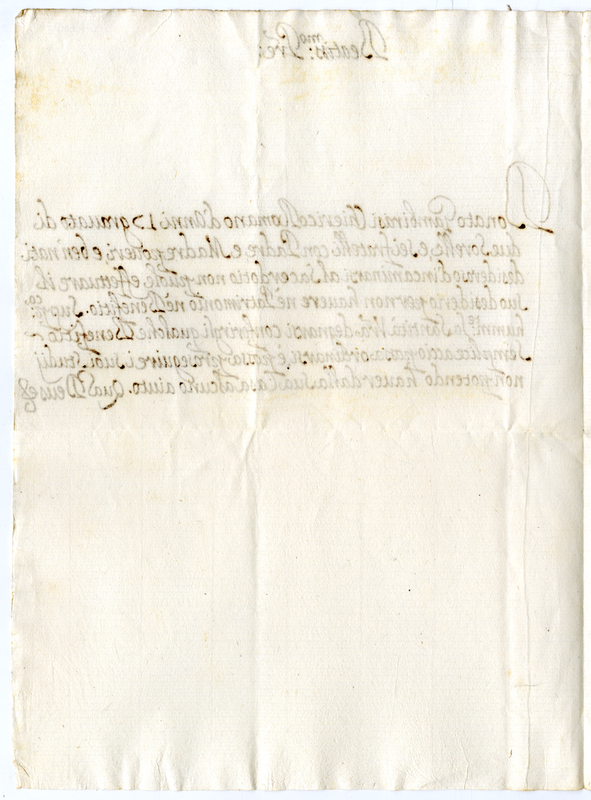 Beatis.mo Pre:
Donato Gambirasi Chierico Romano d'Anni 17 gravato di
due Sorelle, e sei fratelli con Padre, e Madre poveri e ben nati
desideroso d'incaminarsi al Sacerdotio non puole effettuare il
suo desiderio per non havere ne Patrimonio nè Beneficio. Supp.ca
humm.te la Santità Vra degnarsi conferirgli qualche Beneficio
semplice acciò possi ordinarsi, e possa proseguire i suoi studij
non potendo haver dalla sua Casa alcuno aiuto. Quas Deus &